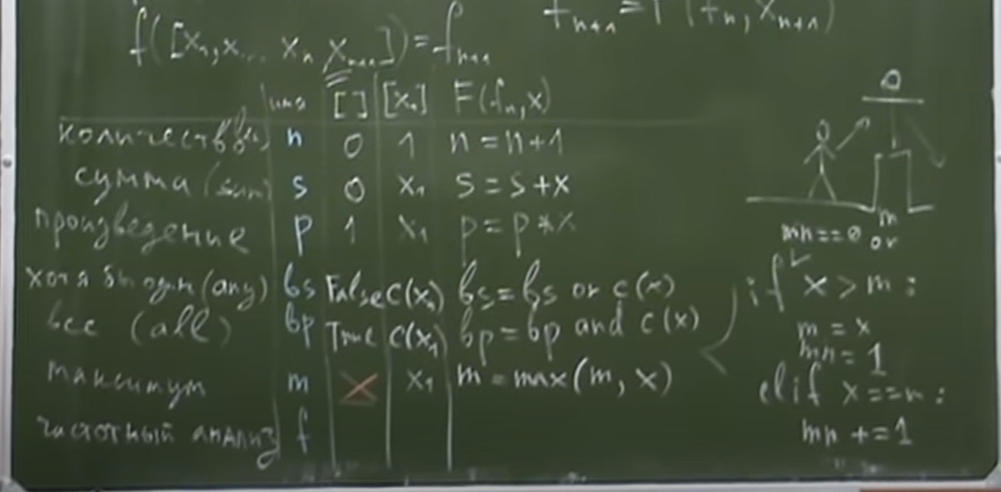 f([x₁,x... xₙ xₙ₊₁])=fₙ₊₁
fₙ₊₁=F(fₙ,xₙ₊₁)
имя [ ] [x₁] F(fₙ,x)
n 0 1 n=n+1
сумма (sum) s 0 x₁ s=s+x
произведение p 1 x₁ p=p*x
хотя бы один (any) bs False c(x₁) bs=bs or c(x)
все (all) bp True c(x₁) bp=bp and c(x)
максимум m x₁ m=max(m, x)
частотный анализ f
m
mn==0 or
if x>m:
m=x
mn=1
elif x==m:
mn+=1